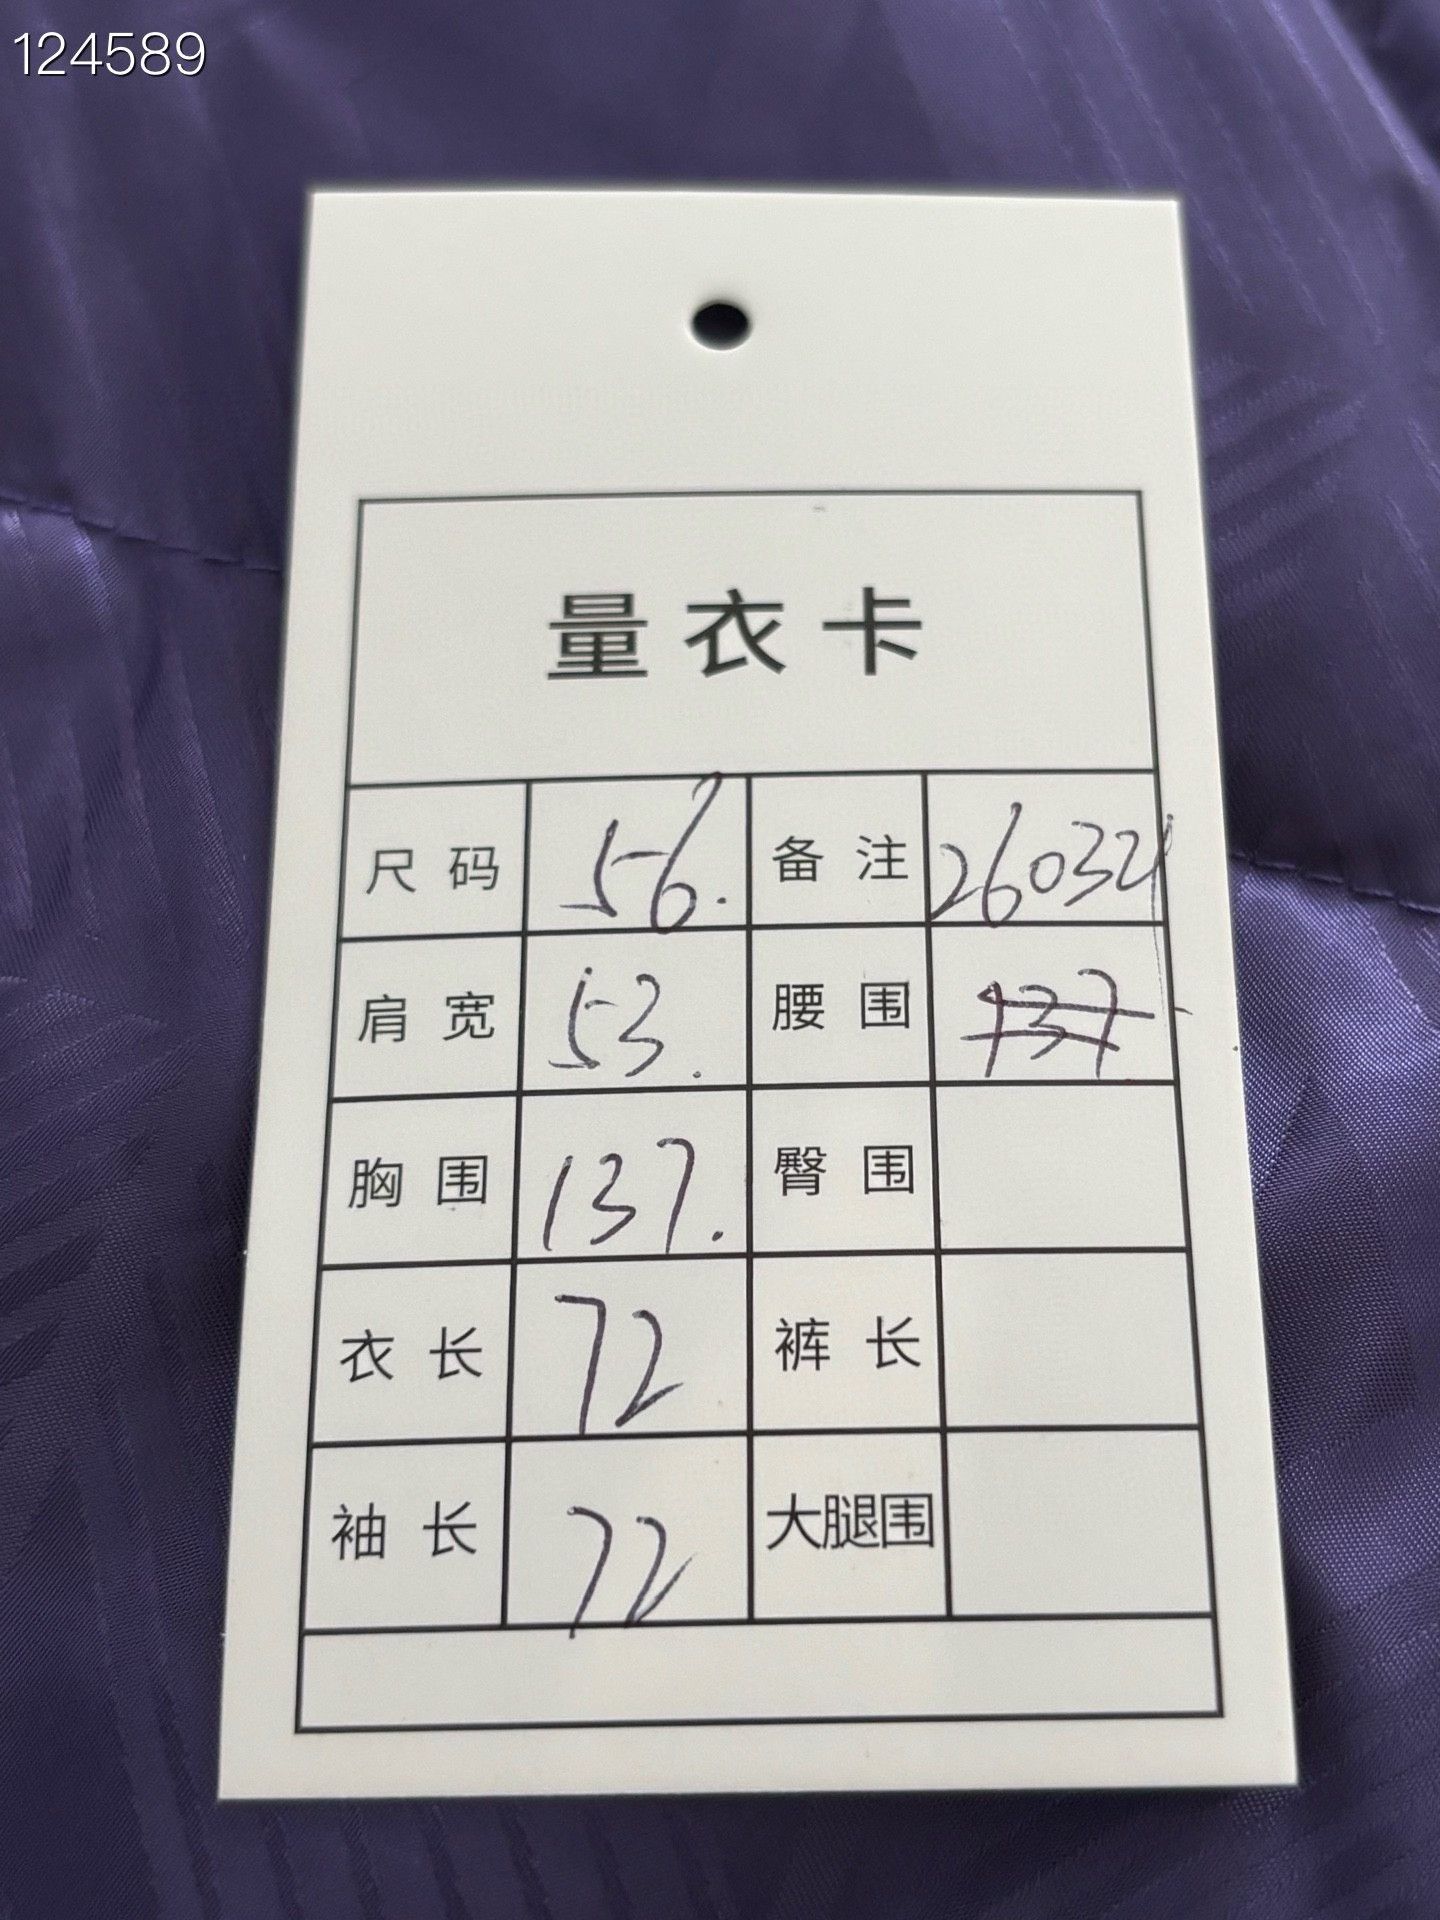 124589
量衣卡
尺码 56. 备注 260321
肩宽 53. 腰围 137
胸围 137. 臀围
衣长 72 裤长
袖长 72 大腿围